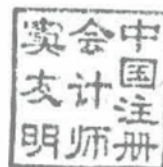 中国注册
会计师
窦友明